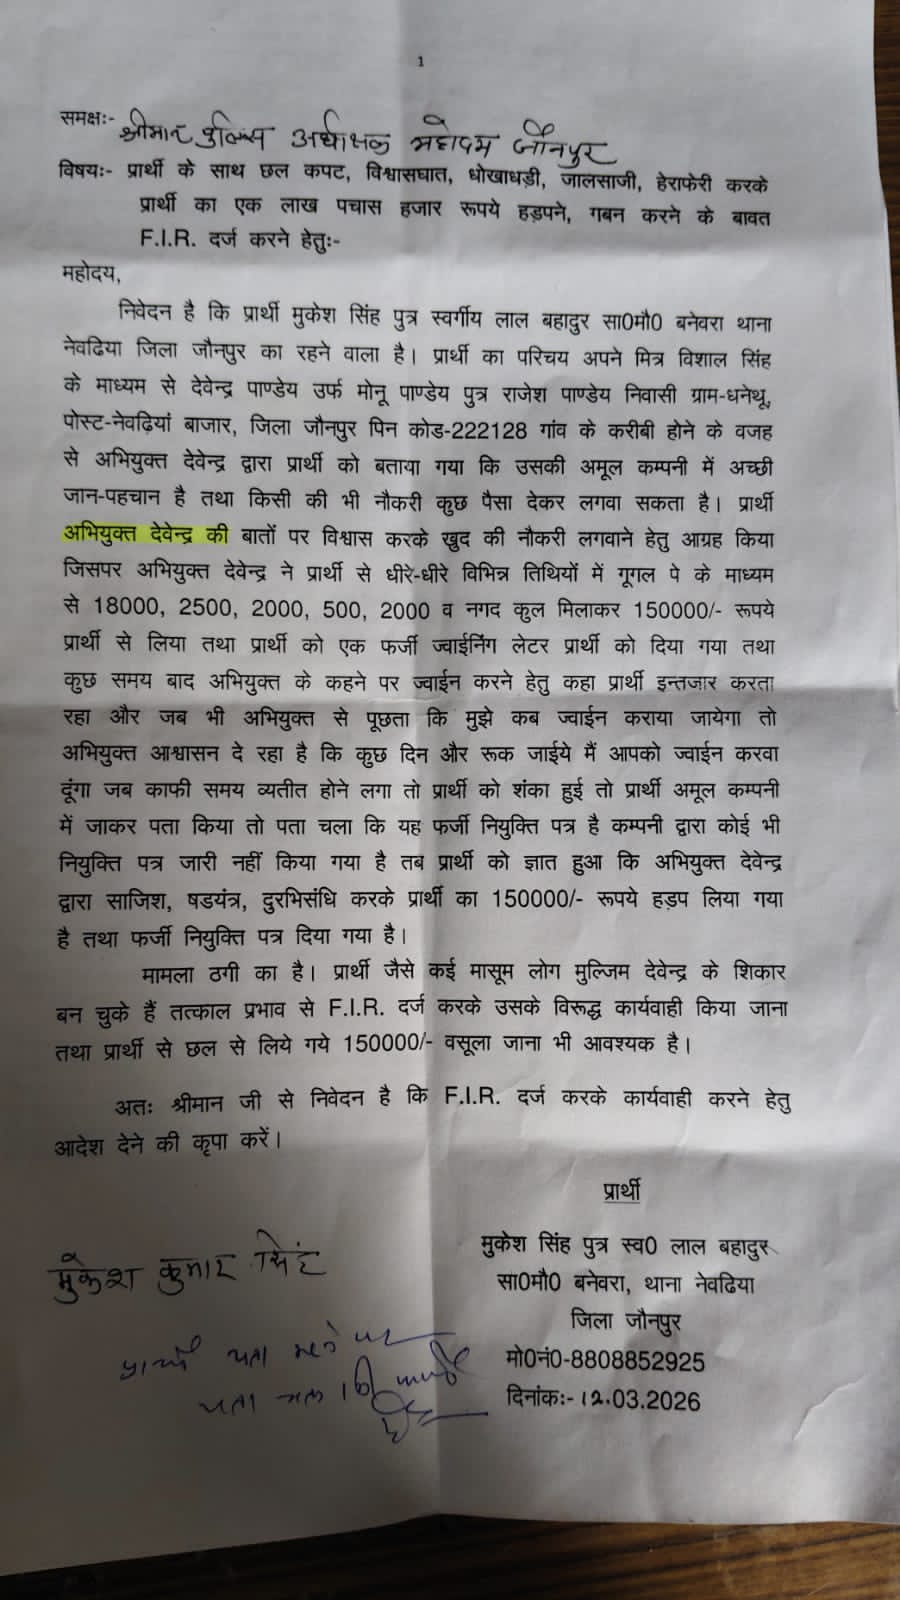 1
समक्षः- श्रीमान पुलिस अधीक्षक महोदय जौनपुर
विषयः- प्रार्थी के साथ छल कपट, विश्वासघात, धोखाधड़ी, जालसाजी, हेराफेरी करके
प्रार्थी का एक लाख पचास हजार रूपये हड़पने, गबन करने के बावत
F.I.R. दर्ज करने हेतुः-
महोदय,
निवेदन है कि प्रार्थी मुकेश सिंह पुत्र स्वर्गीय लाल बहादुर सा0मौ0 बनेवरा थाना
नेवढिया जिला जौनपुर का रहने वाला है। प्रार्थी का परिचय अपने मित्र विशाल सिंह
के माध्यम से देवेन्द्र पाण्डेय उर्फ मोनू पाण्डेय पुत्र राजेश पाण्डेय निवासी ग्राम-धनेथू,
पोस्ट-नेवढ़ियां बाजार, जिला जौनपुर पिन कोड-222128 गांव के करीबी होने के वजह
से अभियुक्त देवेन्द्र द्वारा प्रार्थी को बताया गया कि उसकी अमूल कम्पनी में अच्छी
जान-पहचान है तथा किसी की भी नौकरी कुछ पैसा देकर लगवा सकता है। प्रार्थी
अभियुक्त देवेन्द्र की बातों पर विश्वास करके खुद की नौकरी लगवाने हेतु आग्रह किया
जिसपर अभियुक्त देवेन्द्र ने प्रार्थी से धीरे-धीरे विभिन्न तिथियों में गूगल पे के माध्यम
से 18000, 2500, 2000, 500, 2000 व नगद कुल मिलाकर 150000/- रूपये
प्रार्थी से लिया तथा प्रार्थी को एक फर्जी ज्वाईनिंग लेटर प्रार्थी को दिया गया तथा
कुछ समय बाद अभियुक्त के कहने पर ज्वाईन करने हेतु कहा प्रार्थी इन्तजार करता
रहा और जब भी अभियुक्त से पूछता कि मुझे कब ज्वाईन कराया जायेगा तो
अभियुक्त आश्वासन दे रहा है कि कुछ दिन और रूक जाईये मैं आपको ज्वाईन करवा
दूंगा जब काफी समय व्यतीत होने लगा तो प्रार्थी को शंका हुई तो प्रार्थी अमूल कम्पनी
में जाकर पता किया तो पता चला कि यह फर्जी नियुक्ति पत्र है कम्पनी द्वारा कोई भी
नियुक्ति पत्र जारी नहीं किया गया है तब प्रार्थी को ज्ञात हुआ कि अभियुक्त देवेन्द्र
द्वारा साजिश, षडयंत्र, दुरभिसंधि करके प्रार्थी का 150000/- रूपये हड़प लिया गया
है तथा फर्जी नियुक्ति पत्र दिया गया है।
मामला ठगी का है। प्रार्थी जैसे कई मासूम लोग मुल्जिम देवेन्द्र के शिकार
बन चुके हैं तत्काल प्रभाव से F.I.R. दर्ज करके उसके विरूद्ध कार्यवाही किया जाना
तथा प्रार्थी से छल से लिये गये 150000/- वसूला जाना भी आवश्यक है।
अतः श्रीमान जी से निवेदन है कि F.I.R. दर्ज करके कार्यवाही करने हेतु
आदेश देने की कृपा करें।
प्रार्थी
मुकेश सिंह पुत्र स्व0 लाल बहादुर
सा0मौ0 बनेवरा, थाना नेवढिया
जिला जौनपुर
मो0नं0-8808852925
दिनांकः- 12.03.2026
मुकेश कुमार सिंह
प्रार्थी पता
पता